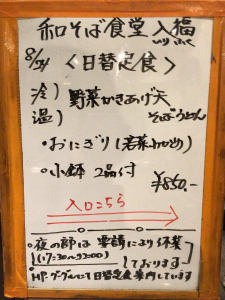 和そば食堂 入福
いり ふく
8/24 <日替定食>
冷) 野菜かきあげ天
温) そばうどん
・おにぎり(若菜
・小鉢 2品付
¥850.-
入口こちら
・夜の部は 要請により休業
(17:30~22:00) しております
・HP.グーグルにて日替定食案内しています